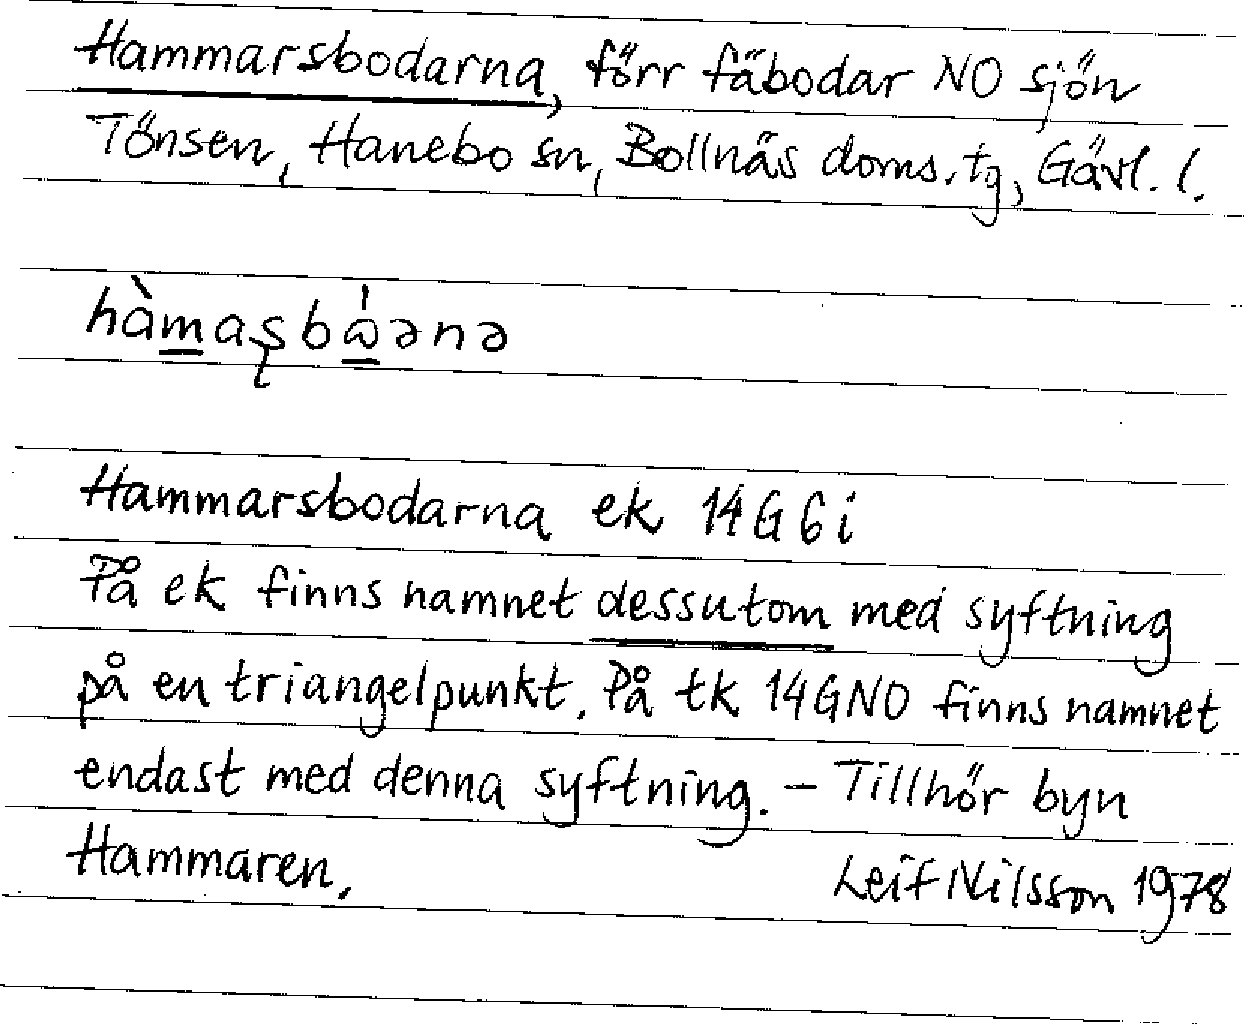 Hammarsbodarna, förr fäbodar NO sjön
Tönsen, Hanebo sn, Bollnäs doms. tg, Gävl. l.
hàm̲aʂbώ̲ənə
Hammarsbodarna ek 14G6i
På ek finns namnet dessutom med syftning
på en triangelpunkt. På tk 14GNO finns namnet
endast med denna syftning. – Tillhör byn
Hammaren.
Leif Nilsson 1978